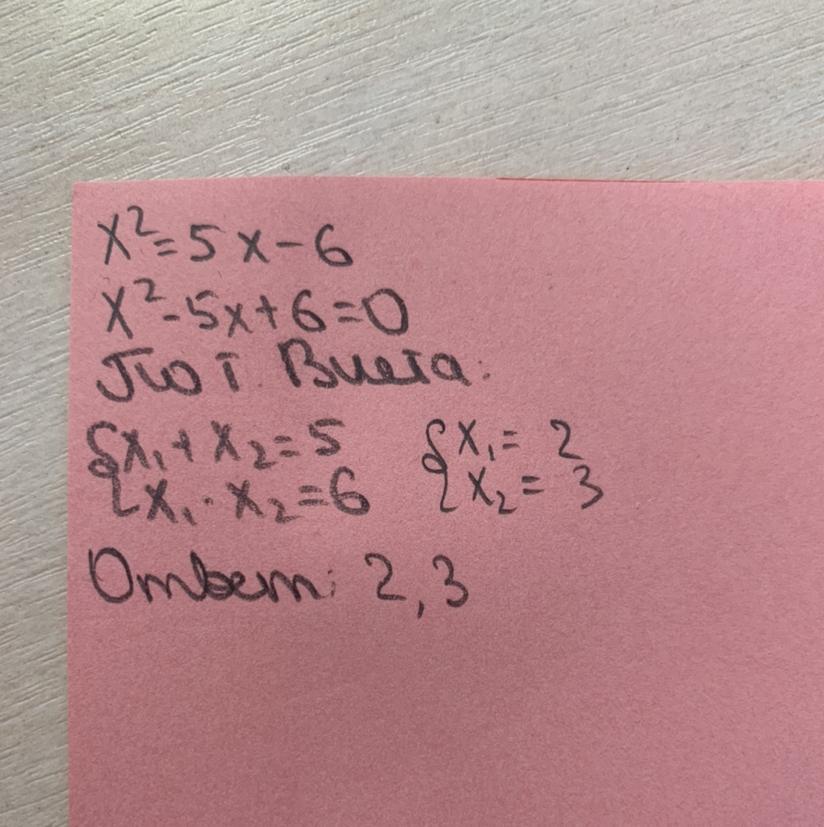 x²=5x-6
x²-5x+6=0
По т. Виета:
{x₁+x₂=5 {x₁=2
{x₁·x₂=6 {x₂=3
Ответ: 2,3